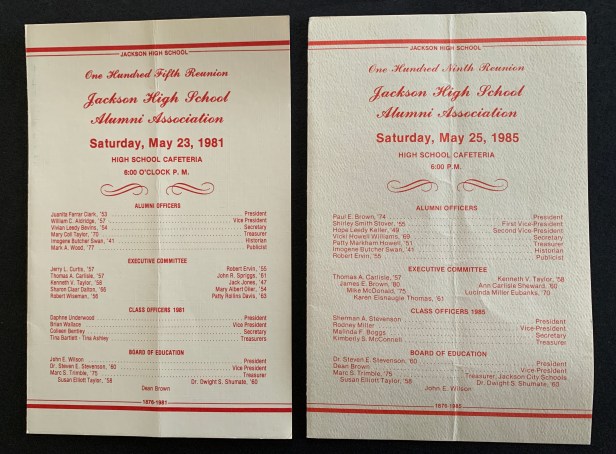 JACKSON HIGH SCHOOL
One Hundred Fifth Reunion
Jackson High School
Alumni Association
Saturday, May 23, 1981
HIGH SCHOOL CAFETERIA
6:00 O'CLOCK P. M.
ALUMNI OFFICERS
Juanita Farrar Clark, '53 President
William C. Aldridge, '57 Vice-President
Vivian Leedy Bevins, '54 Secretary
Mary Coll Taylor, '70 Treasurer
Imogene Butcher Swan, '41 Historian
Mark A. Wood, '77 Publicist
EXECUTIVE COMMITTEE
Jerry L. Curtis, '57 Robert Ervin, '55
Thomas A. Carlisle, '57 John R. Spriggs, '61
Kenneth V. Taylor, '58 Jack Jones, '47
Sharon Claar Dalton, '60 Mary Albert Oiler, '54
Robert Wiseman, '56 Patty Rollins Davis, '63
CLASS OFFICERS 1981
Daphne Underwood President
Brian Wallace Vice-President
Colleen Bentley Secretary
Tina Bartlett - Tina Ashley Treasurers
BOARD OF EDUCATION
John E. Wilson President
Dr. Steven E. Stevenson, '60 Vice-President
Marc S. Trimble, '75 Treasurer
Susan Elliott Taylor, '58 Dr. Dwight S. Shumate, '60
Dean Brown
1876-1981
JACKSON HIGH SCHOOL
One Hundred Ninth Reunion
Jackson High School
Alumni Association
Saturday, May 25, 1985
HIGH SCHOOL CAFETERIA
6:00 P.M.
ALUMNI OFFICERS
Paul E. Brown, '74 President
Shirley Smith Stover, '55 First Vice-President
Hope Leedy Keller, '49 Second Vice-President
Vicki Howell Williams, '69 Secretary
Patty Markham Howell, '51 Treasurer
Imogene Butcher Swan, '41 Historian
Robert Ervin, '55 Publicist
EXECUTIVE COMMITTEE
Thomas A. Carlisle, '57 Kenneth V. Taylor, '58
James E. Brown, '80 Ann Carlisle Sheward, '60
Mike McDonald, '75 Lucinda Miller Eubanks, '70
Karen Elsnaugle Thomas, '61
CLASS OFFICERS 1985
Sherman A. Stevenson President
Rodney Miller Vice-President
Malinda F. Boggs Secretary
Kimberly S. McConneh Treasurer
BOARD OF EDUCATION
Dr. Steven E. Stevenson, '60 President
Dean Brown Vice-President
Marc S. Trimble, '75 Treasurer, Jackson City Schools
Susan Elliott Taylor, '58 Dr. Dwight S. Shumate, '60
John E. Wilson